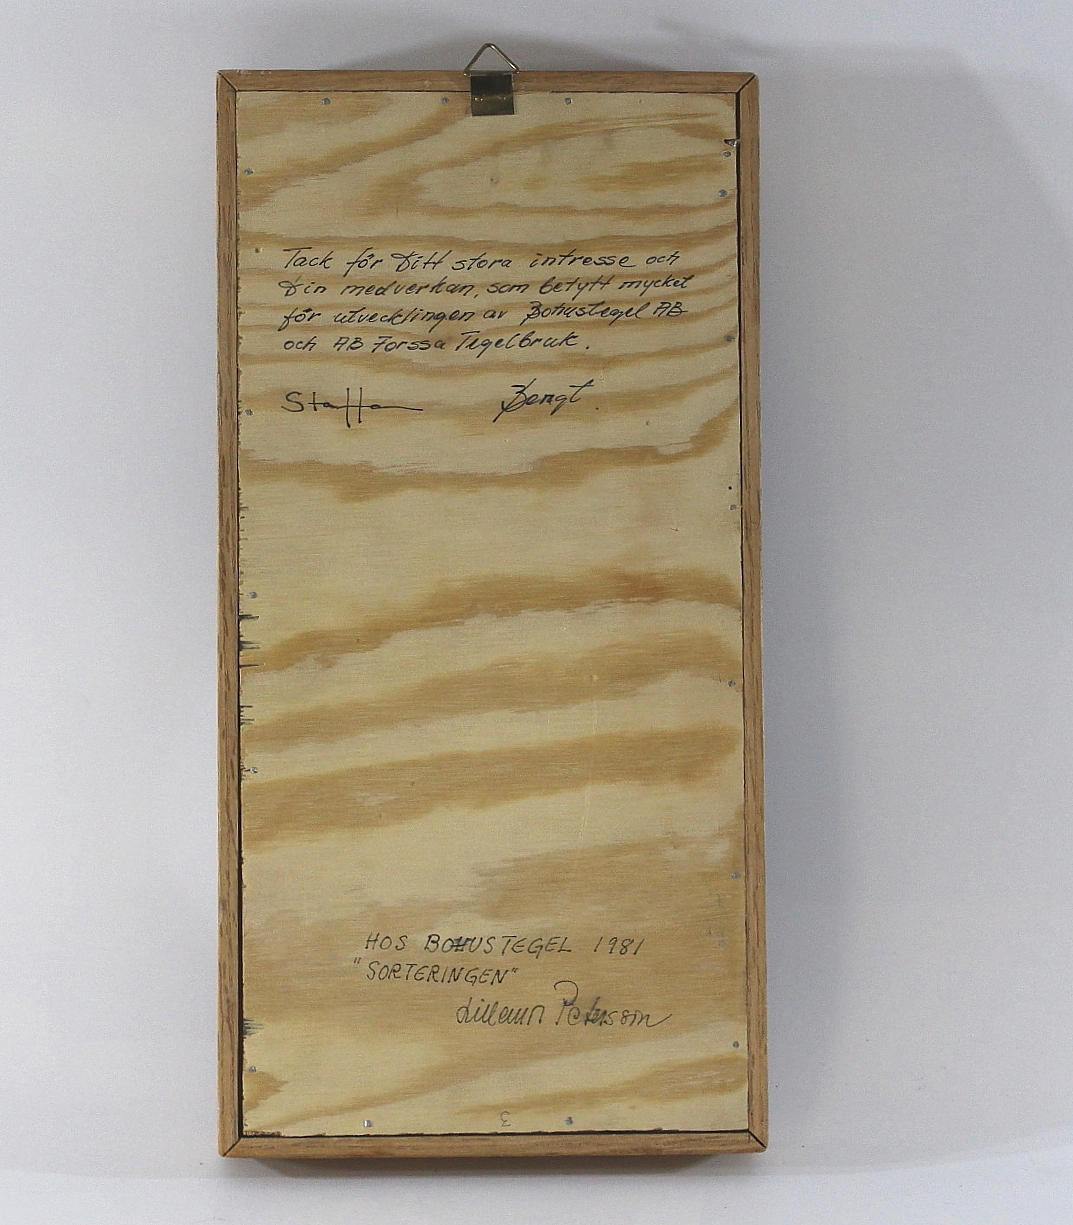 Tack för Ditt stora intresse och
Din medverkan, som betytt mycket
för utvecklingen av Bohustegel AB
och AB Forssa Tegelbruk.
Staffan Bengt.
HOS BOHUSTEGEL 1981
"SORTERINGEN"
Lillemor Petersson
3